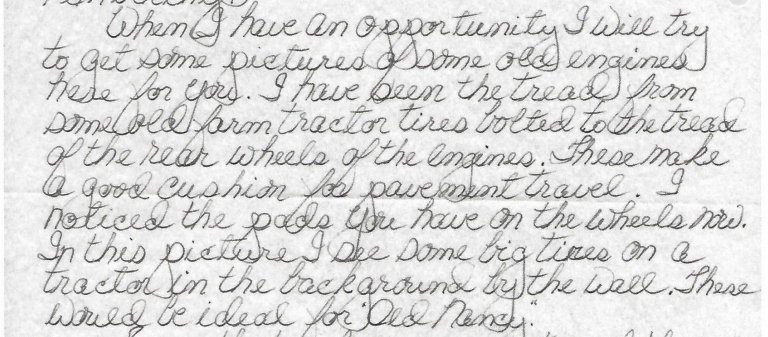 When I have an opportunity I will try
to get some pictures of some old engines
here for you. I have seen the tread from
some old farm tractor tires bolted to the tread
of the rear wheels of the engines. These make
a good cushion for pavement travel. I
noticed the pads you have on the wheels now.
In this picture I see some big tires on a
tractor in the background by the wall. These
would be ideal for "Old Nancy".